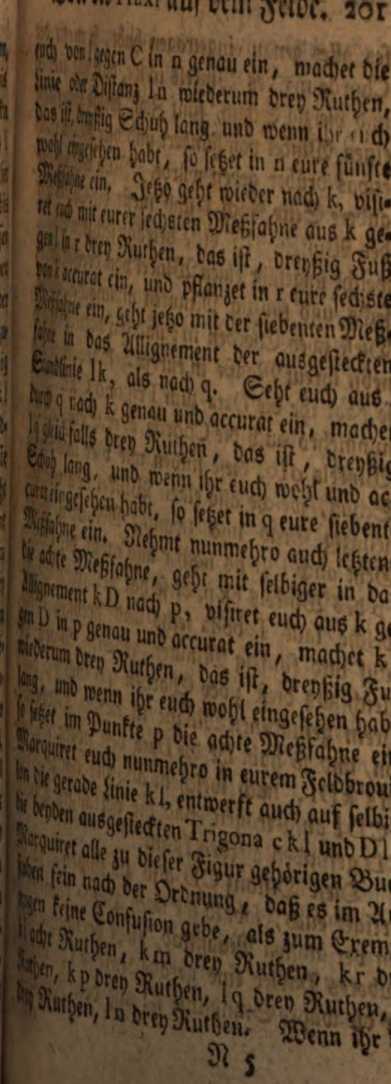 auf dem Felde. 201
euch von l gegen C in n genau ein, machet die
linie oder Distanz ln wiederum drey Ruthen,
das ist, dreyßig Schuh lang. und wenn ihr euch
wohl eingesehen habt, so setzet in n eure fünfte
Meßfahne ein. Jetzo geht wieder nach k, visi-
ret euch mit eurer sechsten Meßfahne aus k ge-
gen l in r drey Ruthen, das ist, dreyßig Fuß
accurat ein, und pflanzet in r eure sechste
Meßfahne ein, geht jetzo mit der siebenten Meß-
fahne in das Allignement der ausgesteckten
Standlinie lk, als nach q. Seht euch aus
durch q nach k genau und accurat ein, machet
lq gleichfalls drey Ruthen, das ist, dreyßig
Schuh lang, und wenn ihr euch wohl und ac-
curat eingesehen habt, so setzet in q eure siebent
Meßfahne ein. Nehmt nunmehro auch letzten
die achte Meßfahne, geht mit selbiger in da
Allignement kD nach p, visiret euch aus k ge
gen D in p genau und accurat ein, machet k
wiederum drey Ruthen, das ist, dreyßig Fu
lang, und wenn ihr euch wohl eingesehen hab
so setzet im Punkte p die achte Meßfahne ei
Marquiret euch nunmehro in eurem Feldbrou
die gerade Linie kl, entwerft auch auf selbi
die beyden ausgesteckten Trigona ckl und Dl
Marquiret alle zu dieser Figur gehörigen Bu
staben fein nach der Ordnung, daß es im A
keine Confusion gebe, als zum Exem
acht Ruthen, km drey Ruthen, kr d
Ruthen, kp drey Ruthen, lq drey Ruthen,
drey Ruthen, ln drey Ruthen. Wenn ihr
N 5